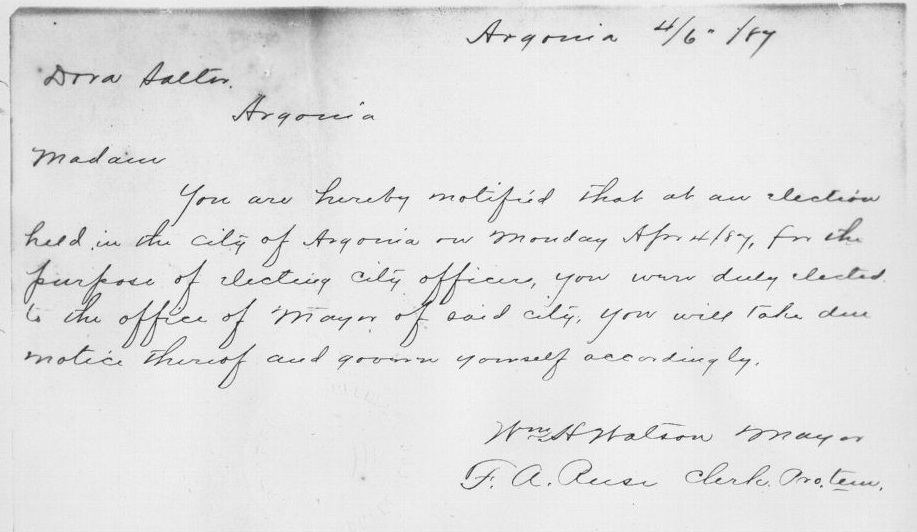 Argonia 4/6" /87
Dora Salter.
Argonia
Madam
You are hereby notified that at an election
held in the city of Argonia on Monday Apr 4/87, for the
purpose of electing city officers, you were duly elected
to the office of Mayor of said city. You will take due
notice thereof and govern yourself accordingly.
Wm H Watson Mayor
F. A. Ruse Clerk. Pro. tem.